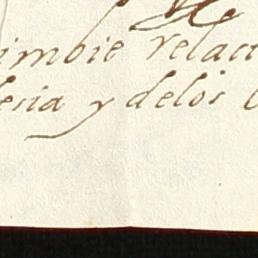 imbie relact
lesia y delos